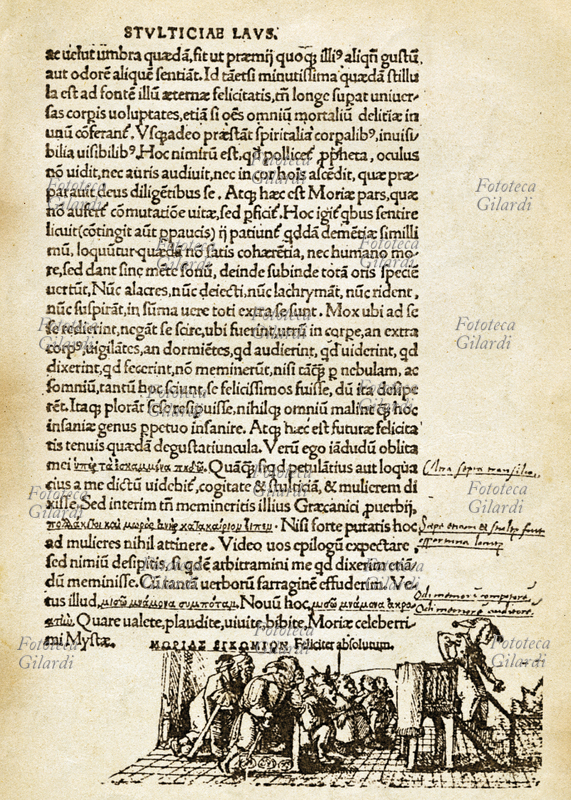 STVLTICIAE LAVS.
ac uelut umbra quædã, fit ut præmij quoq; illi⁹ aliqñ gustũ,
aut odorẽ aliquẽ sentiãt. Id tãetsi minutissima quædã stillu
la est ad fontẽ illũ æternæ felicitatis, tñ longe supat uniuer-
sas corpis uoluptates, etiã si oẽs omniũ mortaliũ delitiæ in
unũ cõferant̃. Vsq;adeo præstãt spiritalia corpalib⁹, inuisi/
bilia visibilib⁹. Hoc nimirũ est, qd̃ pollicet̃ ꝓpheta, oculus
nõ uidit, nec auris audiuit, nec in cor hoĩs ascẽdit, quæ præ-
parauit deus diligẽtibus se. Atq; hæc est Moriæ pars, quæ
nõ aufert̃ cõmutatiõe uitæ, sed ꝑficit̃. Hoc igit̃ qbus sentire
licuit (cõtingit aũt ꝑpaucis) ij patiunt̃ qddã demẽtiæ simillí
mũ, loquũtur quædã nõ satis cohærẽtia, nec humano mo-
re, sed dant sine mẽte sonũ, deinde subinde totã oris speciẽ
uertũt. Nũc alacres, nũc deiecti, nũc lachrymãt, nũc rident,
nũc suspirãt, in sũma uere toti extra se sunt. Mox ubi ad se
se redierint, negãt se scire, ubi fuerint, utrũ in corpe, an extra
corp⁹, uigilãtes, an dormiẽtes, qd audierint, qd uiderint, qd
dixerint, qd fecerint, nõ meminerũt, nisi tãq̃ p nebulam, ac
somniũ, tantũ hoc sciunt, se felicissimos fuisse, dũ ita desipe
rẽt. Itaq; plorãt sese resipuisse, nihilq; omniũ malint q̃ hoc
insaniæ genus ppetuo insanire. Atq; hæc est futuræ felicita
tis tenuis quædã degustatiuncula. Verũ ego iãdudũ oblita
mei ὑπὲρ τὰ ἐσκαμμένα πηδῶ. Quãq̃ siqd petulãtius aut loqua
cius a me dictũ uidebit̃, cogitate & stulticiã, & mulierem di
xisse. Sed interim tñ memineritis illius Græcanici ꝓuerbij,
πολλάκι τοι καὶ μωρὸς ἀνὴρ κατακαίριον εἶπεν. Nisi forte putatis hoc
ad mulieres nihil attinere. Video uos epilogũ expectare,
sed nimiũ desipitis, si qdẽ arbitramini me qd dixerim etiã/
dũ meminisse. Cũ tantã uerborũ farraginẽ effuderim. Ve-
tus illud, μισῶ μνάμονα συμπόταν. Nouũ hoc, μισῶ μνάμονα ἀκρο-
ατὴν. Quare ualete, plaudite, uiuite, bibite, Moriæ celeberri
mi Mystæ.
ΜΩΡΙΑΣ ΕΓΚΩΜΙΟΝ Feliciter absolutum.
Fototeca
Gilardi